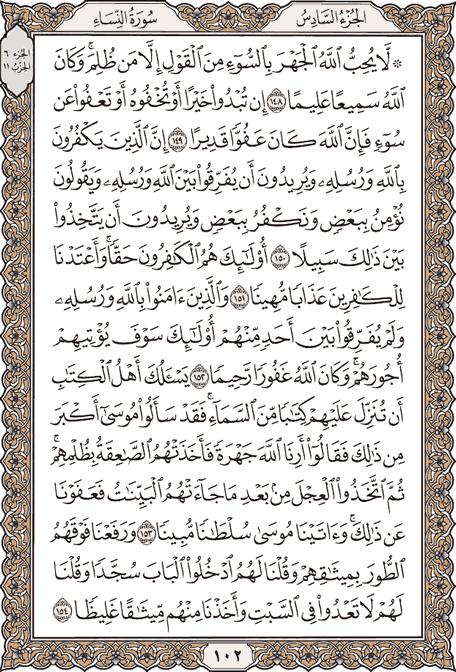 الجزء السادس
سورة النساء
الجزء ٦
الحزب ١١
۞ لَّا يُحِبُّ ٱللَّهُ ٱلْجَهْرَ بِٱلسُّوٓءِ مِنَ ٱلْقَوْلِ إِلَّا مَن ظُلِمَ ۚ وَكَانَ
ٱللَّهُ سَمِيعًا عَلِيمًا ۝١٤٨ إِن تُبْدُوا۟ خَيْرًا أَوْ تُخْفُوهُ أَوْ تَعْفُوا۟ عَن
سُوٓءٍ فَإِنَّ ٱللَّهَ كَانَ عَفُوًّا قَدِيرًا ۝١٤٩ إِنَّ ٱلَّذِينَ يَكْفُرُونَ
بِٱللَّهِ وَرُسُلِهِۦ وَيُرِيدُونَ أَن يُفَرِّقُوا۟ بَيْنَ ٱللَّهِ وَرُسُلِهِۦ وَيَقُولُونَ
نُؤْمِنُ بِبَعْضٍ وَنَكْفُرُ بِبَعْضٍ وَيُرِيدُونَ أَن يَتَّخِذُوا۟
بَيْنَ ذَٰلِكَ سَبِيلًا ۝١٥٠ أُو۟لَٰٓئِكَ هُمُ ٱلْكَٰفِرُونَ حَقًّا ۚ وَأَعْتَدْنَا
لِلْكَٰفِرِينَ عَذَابًا مُّهِينًا ۝١٥١ وَٱلَّذِينَ ءَامَنُوا۟ بِٱللَّهِ وَرُسُلِهِۦ
وَلَمْ يُفَرِّقُوا۟ بَيْنَ أَحَدٍ مِّنْهُمْ أُو۟لَٰٓئِكَ سَوْفَ يُؤْتِيهِمْ
أُجُورَهُمْ ۗ وَكَانَ ٱللَّهُ غَفُورًا رَّحِيمًا ۝١٥٢ يَسْـَٔلُكَ أَهْلُ ٱلْكِتَٰبِ
أَن تُنَزِّلَ عَلَيْهِمْ كِتَٰبًا مِّنَ ٱلسَّمَآءِ ۚ فَقَدْ سَأَلُوا۟ مُوسَىٰٓ أَكْبَرَ
مِن ذَٰلِكَ فَقَالُوٓا۟ أَرِنَا ٱللَّهَ جَهْرَةً فَأَخَذَتْهُمُ ٱلصَّٰعِقَةُ بِظُلْمِهِمْ ۚ
ثُمَّ ٱتَّخَذُوا۟ ٱلْعِجْلَ مِنۢ بَعْدِ مَا جَآءَتْهُمُ ٱلْبَيِّنَٰتُ فَعَفَوْنَا
عَن ذَٰلِكَ ۚ وَءَاتَيْنَا مُوسَىٰ سُلْطَٰنًا مُّبِينًا ۝١٥٣ وَرَفَعْنَا فَوْقَهُمُ
ٱلطُّورَ بِمِيثَٰقِهِمْ وَقُلْنَا لَهُمُ ٱدْخُلُوا۟ ٱلْبَابَ سُجَّدًا وَقُلْنَا
لَهُمْ لَا تَعْدُوا۟ فِى ٱلسَّبْتِ وَأَخَذْنَا مِنْهُم مِّيثَٰقًا غَلِيظًا ۝١٥٤
١٠٢